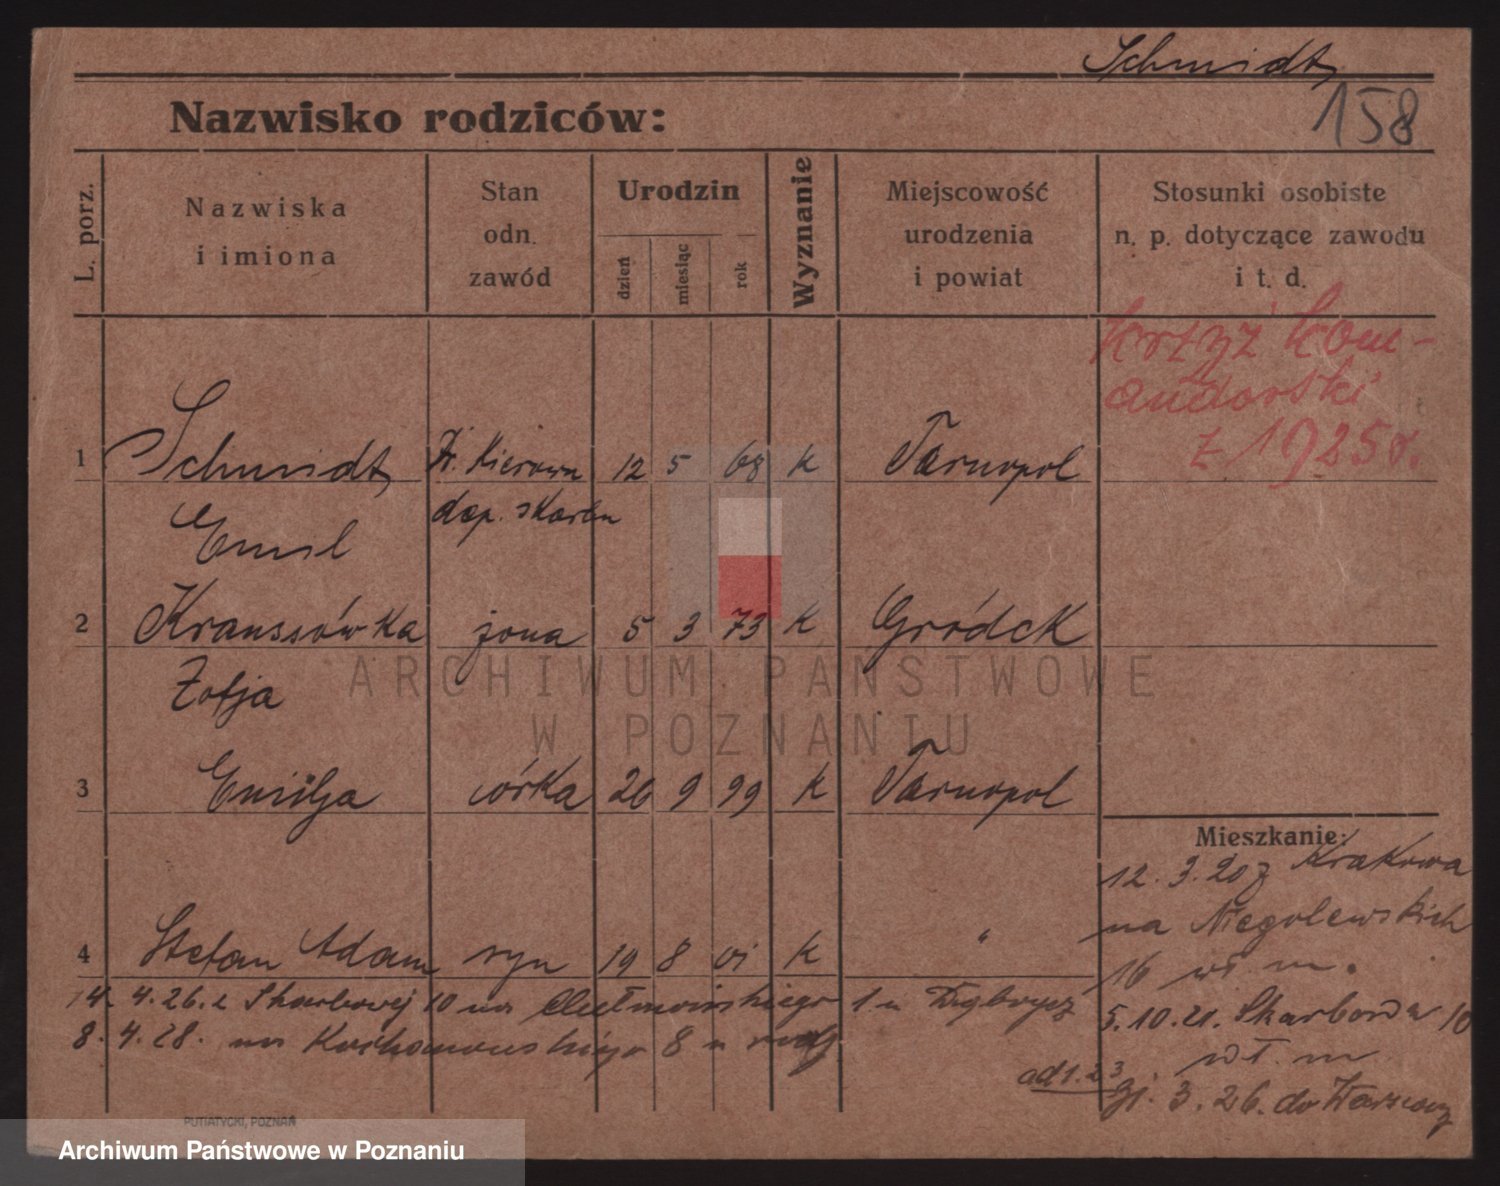 Schmidt
158
Nazwisko rodziców:
L. porz.
Nazwiska
i imiona
Stan
odn.
zawód
Urodzin
dzień
miesiąc
rok
Wyznanie
Miejscowość
urodzenia
i powiat
Stosunki osobiste
n. p. dotyczące zawodu
i t. d.
Krzyż kom-
andorski
z 1925 r.
1 Schmidt Kierown 12 5 68 k Tarnopol
Emil dep. skarbu
2 Kraussówka żona 5 3 73 k Gródek
Zofja
3 Emilja córka 20 9 99 k Tarnopol
4 Stefan Adam syn 19 8 01 k "
Mieszkanie:
12. 3. 20 z Krakowa
na Niegolewskich
16 wł. m.
5. 10. 21. Skarbowa 10
wł. m
ad 1. 2 3
31. 3. 26. do Warszawy
14. 4. 26. z Skarbowej 10 na Chełmońskiego 1 u
8. 4. 28. na Kochanowskiego 8 u
PUTIATYCKI, POZNAŃ
ARCHIWUM PAŃSTWOWE
W POZNANIU
Archiwum Państwowe w Poznaniu